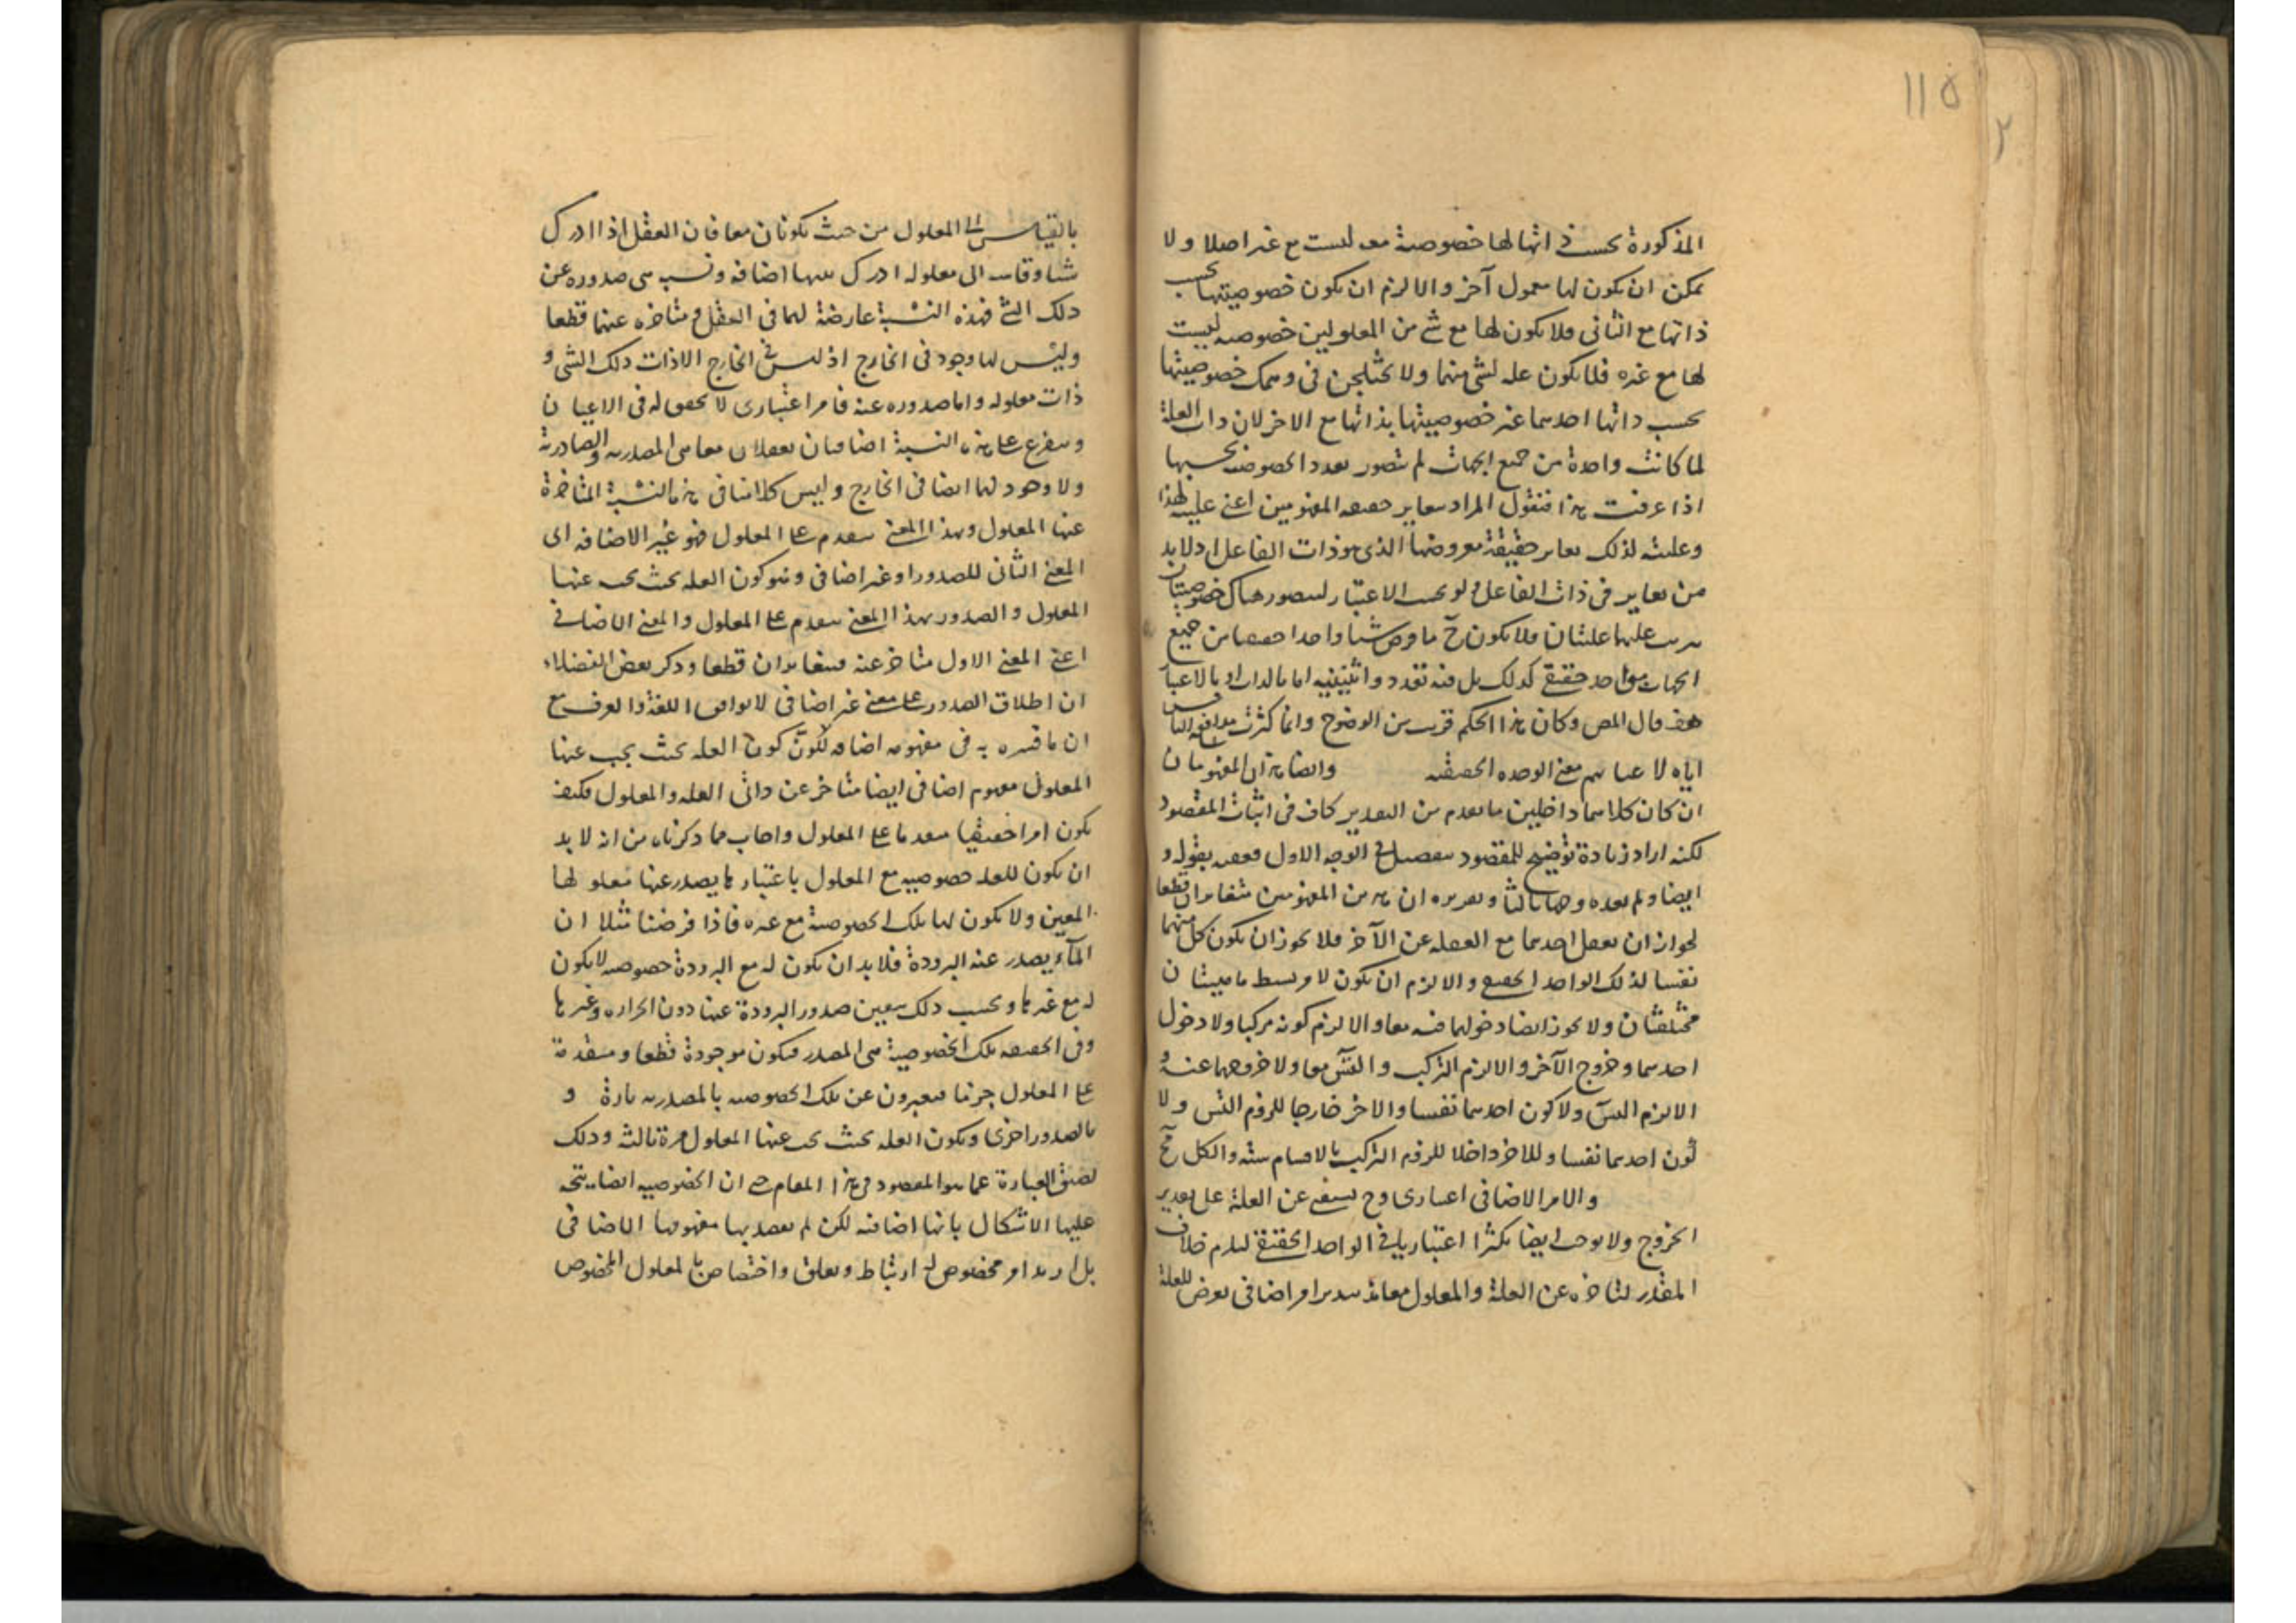 ١١٥
٢
المذكورة بحسب ذاتها لها خصوصية معه ليست مع غيره اصلا ولا
يمكن ان يكون لها معمول آخر والا لزم ان يكون خصوصيتها بحسب
ذاتها مع الثاني فلا يكون لها مع شئ من المعلولين خصوصيه ليست
لها مع غيره فلا يكون علة لشئ منهما ولا يختلجن في وهمك خصوصيتها
بحسب ذاتها احدهما غير خصوصيتها بذاتها مع الاخر لان ذات العلة
لما كانت واحدة من جميع الجهات لم يتصور تعدد الخصوصية بحسبها
اذا عرفت هذا فنقول المراد بتغاير حقيقة المفهومين اعني عليته لهذا
وعليته لذلك تغاير حقيقة معروضها الذي هو ذات الفاعل اذ لا بد
من تغاير في ذات الفاعل ولو بحسب الاعتبار ليتصور هناك خصوصيتان
يترتب عليها عليتان فلا يكون ح ما فرض شيئا واحدا حقيقيا من جميع
الجهات هو واحد حقيقي كذلك بل فيه تعدد واثنينية اما بالذات او بالاعتبار
هف قال المص وكان هذا الحكم قريب من الوضوح وانما كثرت مدافعة الناس
اياه لاغفالهم معنى الوحده الحقيقيه وايضا هذان المفهومان
ان كان كلاهما داخلين ما تقدم من التقدير كاف في اثبات المقصود
لكنه اراد زيادة توضيح للمقصود بتفصيل في الوجه الاول فعقبه بقوله و
ايضا ولم يعده وجها ثالثا وتقريره ان هذين المفهومين متغايران قطعا
لجواز ان يعقل احدهما مع الغفلة عن الآخر فلا يجوز ان يكون كل منهما
نفسا لذلك الواحد الحقيقي والا لزم ان يكون لامر بسيط ماهيتان
مختلفتان ولا يجوز ايضا دخولهما فيه معا والا لزم كونه مركبا ولا دخول
احدهما وخروج الآخر والا لزم التركيب والتس معا ولا خروجهما عنه و
الا لزم التس ولا كون احدهما نفسا والاخر خارجا للزوم التس ولا
كون احدهما نفسا وللاخر داخلا للزوم التركيب فالاقسام ستة والكل مح
والامر الاضافي اعتباري وح يستغني عن العلة على تقدير
الخروج ولا يوجب ايضا تكثرا اعتباريا في الواحد الحقيقي ليلزم خلاف
المقدر لتاخره عن العلة والمعلول معا اذ امر اضافي يعرض للعلة
بالقياس الى المعلول من حيث يكونان معا فان العقل اذا ادرك
شيئا وقاسه الى معلوله ادرك بينهما اضافة ونسبة هي صدوره عن
ذلك الشئ فهذه النسبة عارضة لهما في العقل ومتاخرة عنهما قطعا
وليس لها وجود في الخارج اذ ليس في الخارج الا ذات ذلك الشئ و
ذات معلوله واما صدوره عنه فامر اعتباري لا تحقق له في الاعيان
ويتفرع على هذه النسبة اضافتان تعقلان معا هي المصدرية والصادرية
ولا وجود لهما ايضا في الخارج وليس كلامنا في هذه النسبة المتاخرة
عنها المعلول وبهذا المعنى يتقدم على المعلول فهو غير الاضافة اي
المعنى الثاني للصدور او غير اضافي وهو كون العلة بحيث يجب عنها
المعلول والصدور بهذا المعنى يتقدم على المعلول والمعنى الاضافي
اعني المعنى الاول متاخر عنه فيتغايران قطعا وذكر بعض الفضلاء
ان اطلاق الصدور على معنى غير اضافي لا يوافق اللغة والعرف مع
ان ما فسره به في مفهومه اضافة لكون كون العلة بحيث يجب عنها
المعلول مفهوم اضافي ايضا متاخر عن ذاتي العلة والمعلول فكيف
يكون امرا حقيقيا متقدما على المعلول واجاب بما ذكرناه من انه لا بد
ان يكون للعلة خصوصيه مع المعلول باعتبارها يصدر عنها معلولها
المعين ولا يكون لها تلك الخصوصية مع غيره فاذا فرضنا مثلا ان
المآء يصدر عنه البرودة فلا بد ان يكون له مع البرودة خصوصيه لا يكون
له مع غيرها وبحسب ذلك يتعين صدور البرودة عنها دون الحرارة وغيرها
وفي الحقيقة تلك الخصوصية هي المصدر فيكون موجودة قطعا ومتقدمة
على المعلول جزما فيعبرون عن تلك الخصوصيه بالمصدرية تارة و
بالصدور اخرى وبكون العلة بحيث يجب عنها المعلول مرة ثالثة وذلك
لضيق العبارة عما هو المقصود في هذا المقام حتى ان الخصوصيه ايضا يتجه
عليها الاشكال بانها اضافيه لكن لم يقصد بها مفهومها الاضافي
بل اريد امر مخصوص له ارتباط وتعلق واختصاص بالمعلول المخصوص